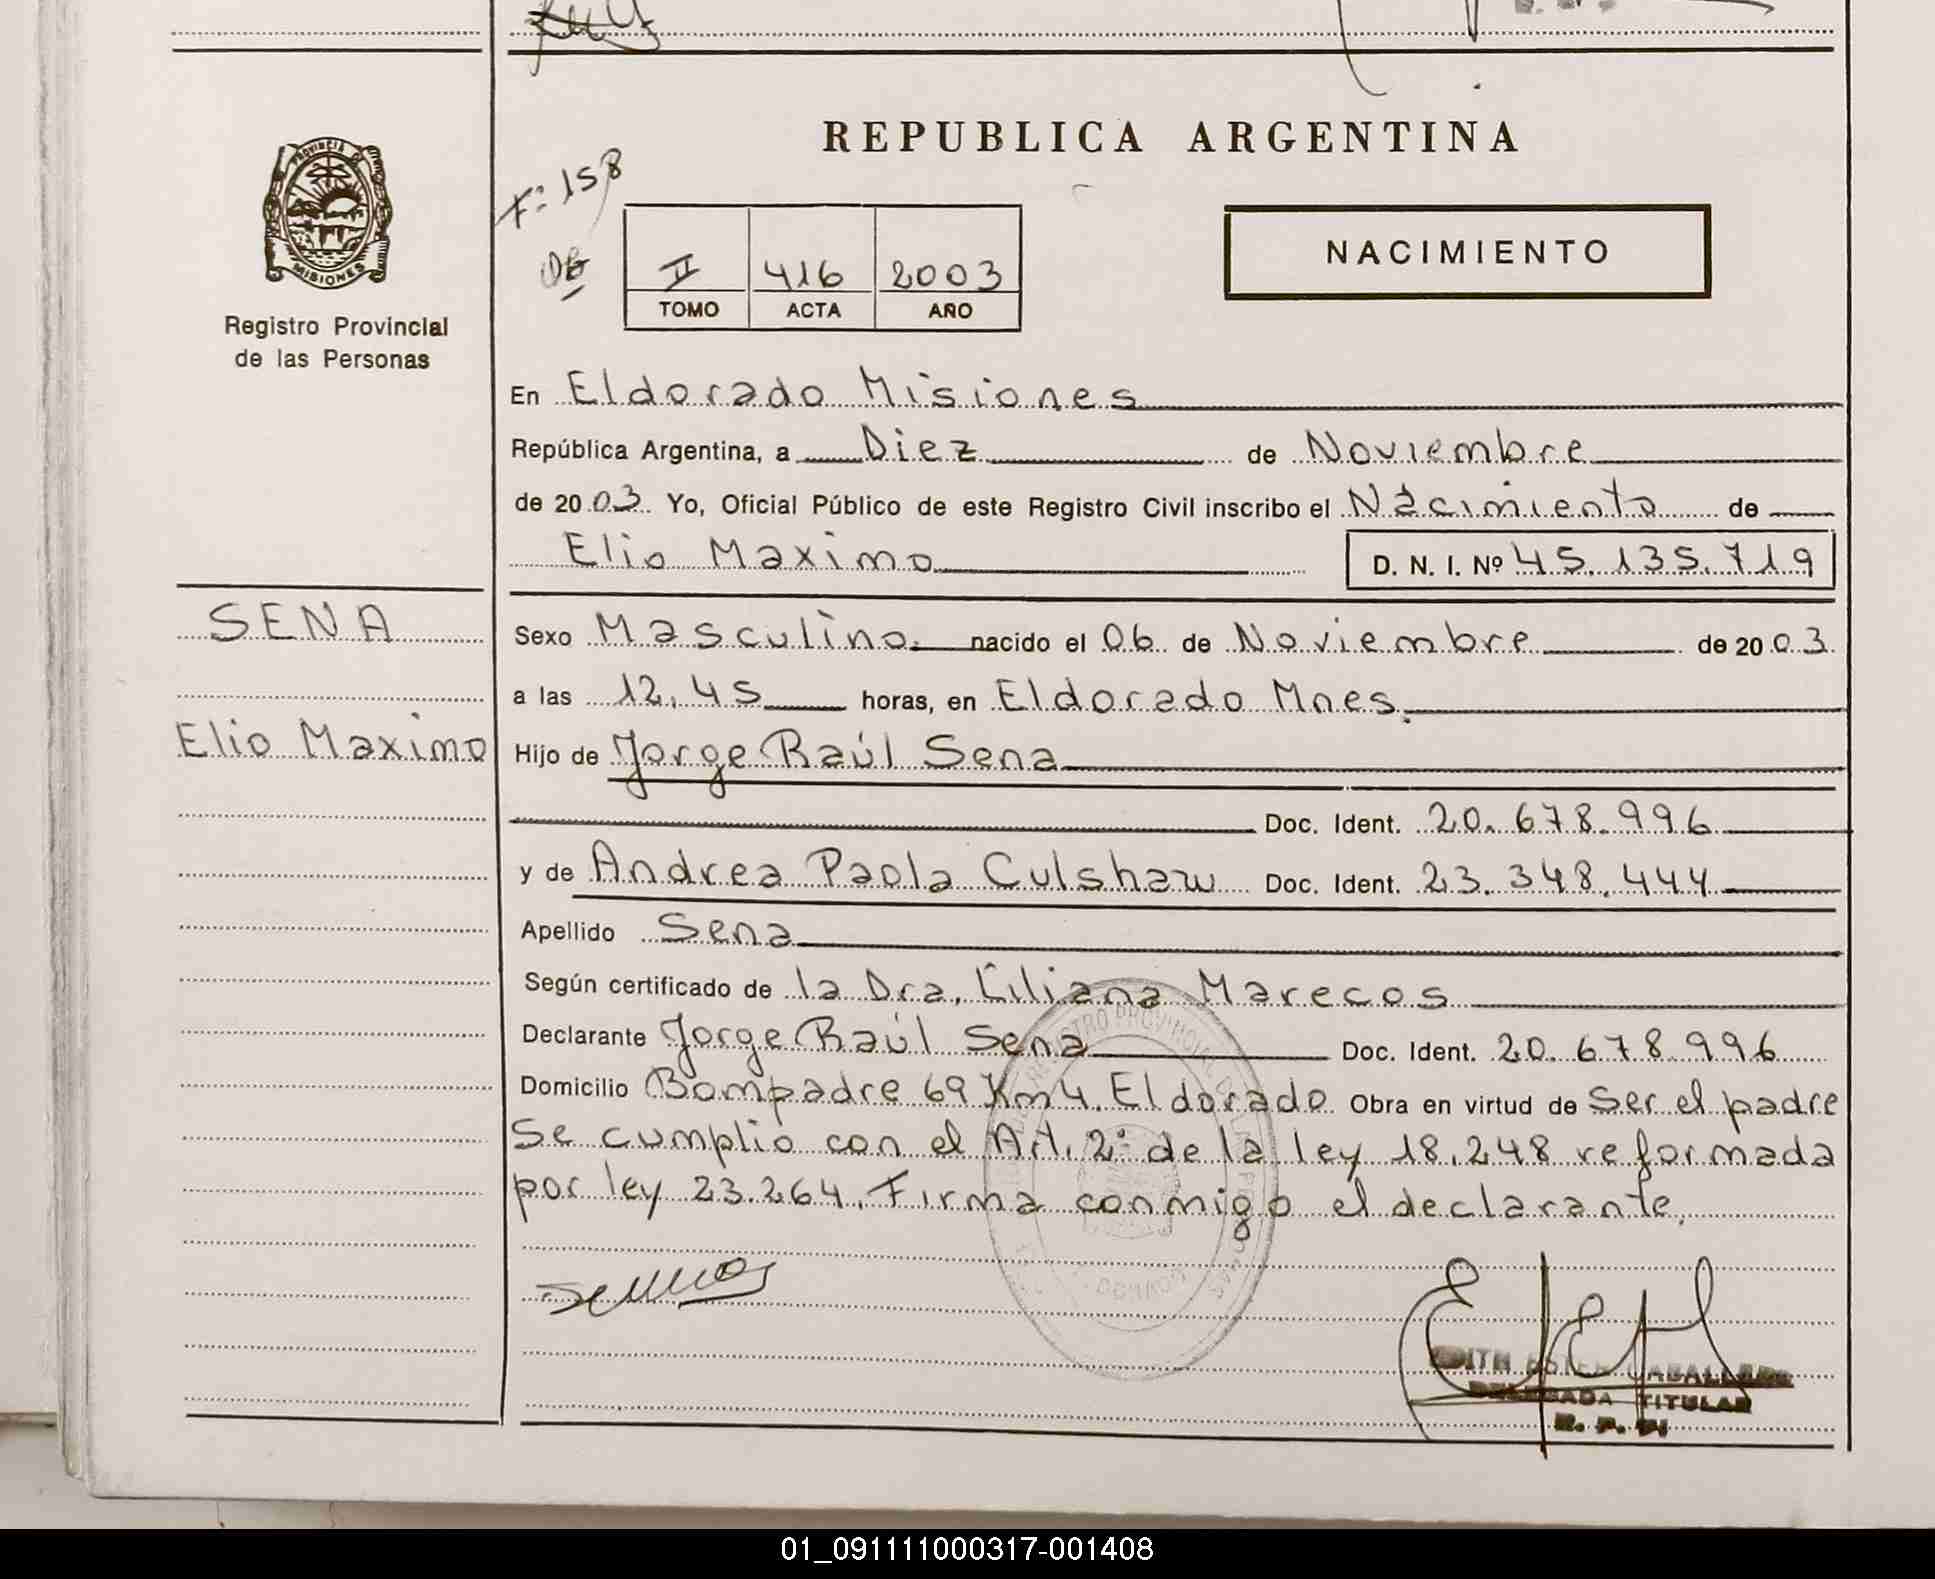 REPUBLICA ARGENTINA
PROVINCIA DE
MISIONES
Registro Provincial
de las Personas
F: 158
II 416 2003
TOMO ACTA AÑO
NACIMIENTO
En Eldorado Misiones
República Argentina, a Diez de Noviembre
de 2003. Yo, Oficial Público de este Registro Civil inscribo el Nacimiento de
Elio Maximo D. N. I. Nº 45.135.719
SENA
Elio Maximo
Sexo Masculino. nacido el 06 de Noviembre de 2003
a las 12,45 horas, en Eldorado Mnes.
Hijo de Jorge Raúl Sena
Doc. Ident. 20.678.996
y de Andrea Paola Culshaw Doc. Ident. 23.348.444
Apellido Sena
Según certificado de la Dra. Liliana Marecos
Declarante Jorge Raúl Sena Doc. Ident. 20.678.996
Domicilio Bompadre 69 Km 4. Eldorado Obra en virtud de Ser el padre
Se cumplio con el Art. 2° de la ley 18.248 reformada
por ley 23.264. Firma conmigo el declarante.
EDITH ESTER CABALLERO
DELEGADA TITULAR
01_091111000317-001408